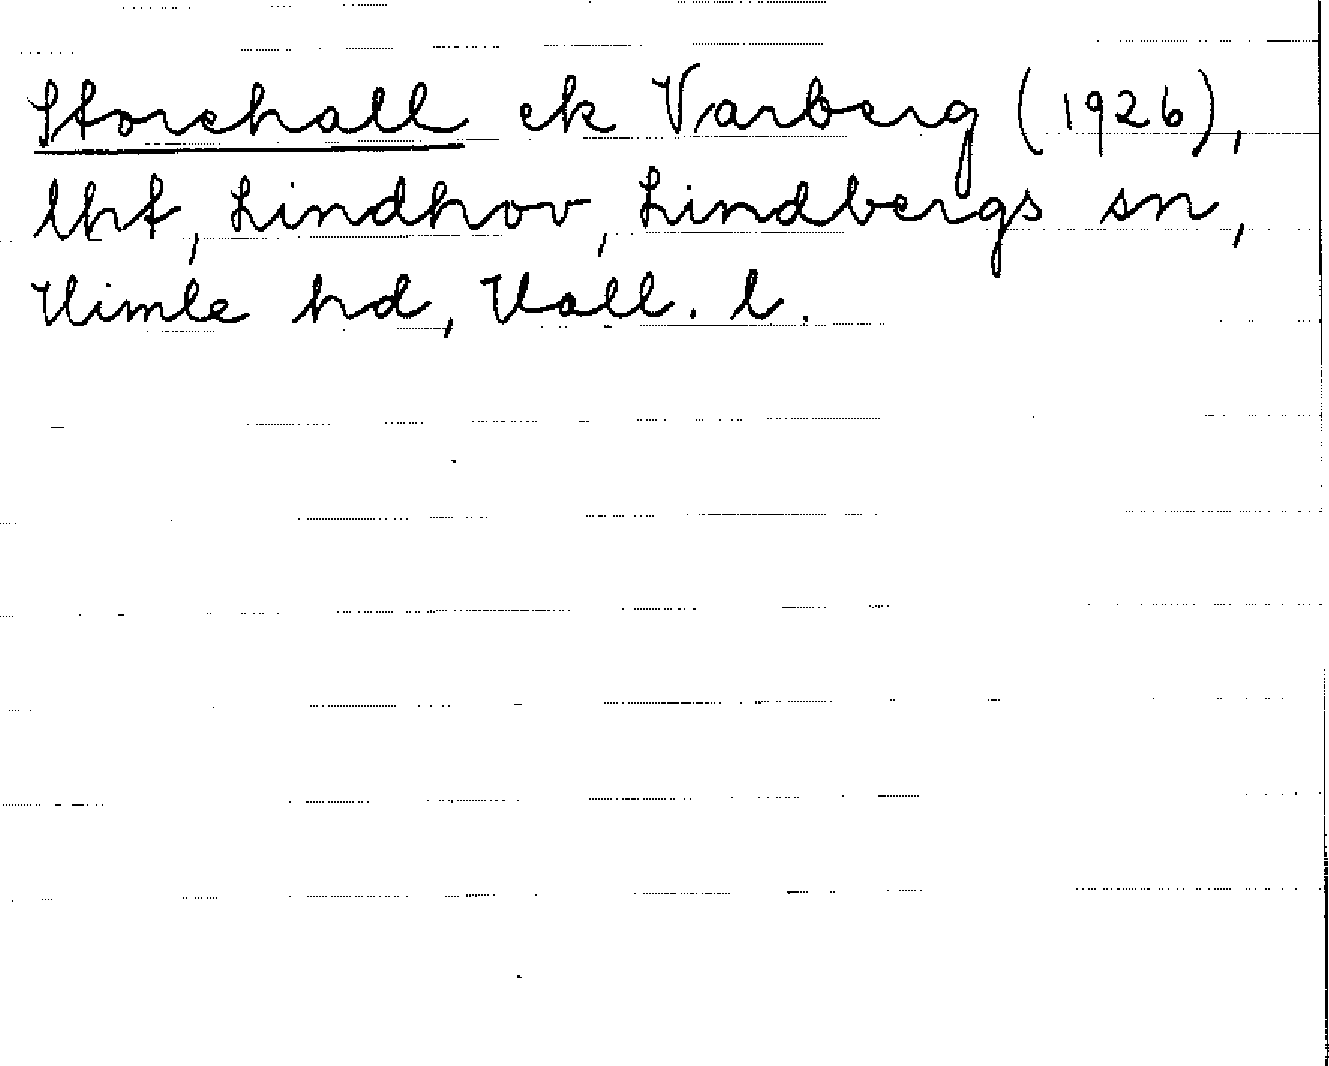 Storehall ek Varberg (1926),
lht, Lindhov, Lindbergs sn,
Himle hd, Hall. l.